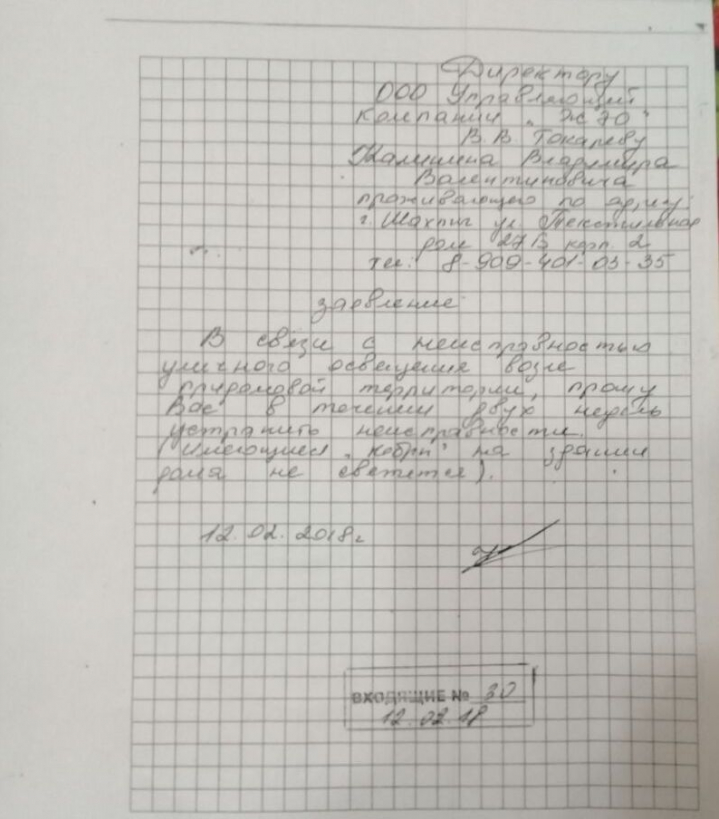 Директору
ООО Управляющий
Компании „ЖЭО"
В.В Токареву
Калинина Владимира
Валентиновича
проживающего по адресу:
г. Шахты ул Текстильная
дом 27 Б корп. 2
тел: 8-909-401-03-35
заявление
В связи с неисправностью
уличного освещения возле
придомовой территории, прошу
Вас в течении двух недель
устранить неисправности.
(имеющиеся „кобры" на здании
дома не светется).
12.02.2018г
ВХОДЯЩИЕ № 30
12.02.18